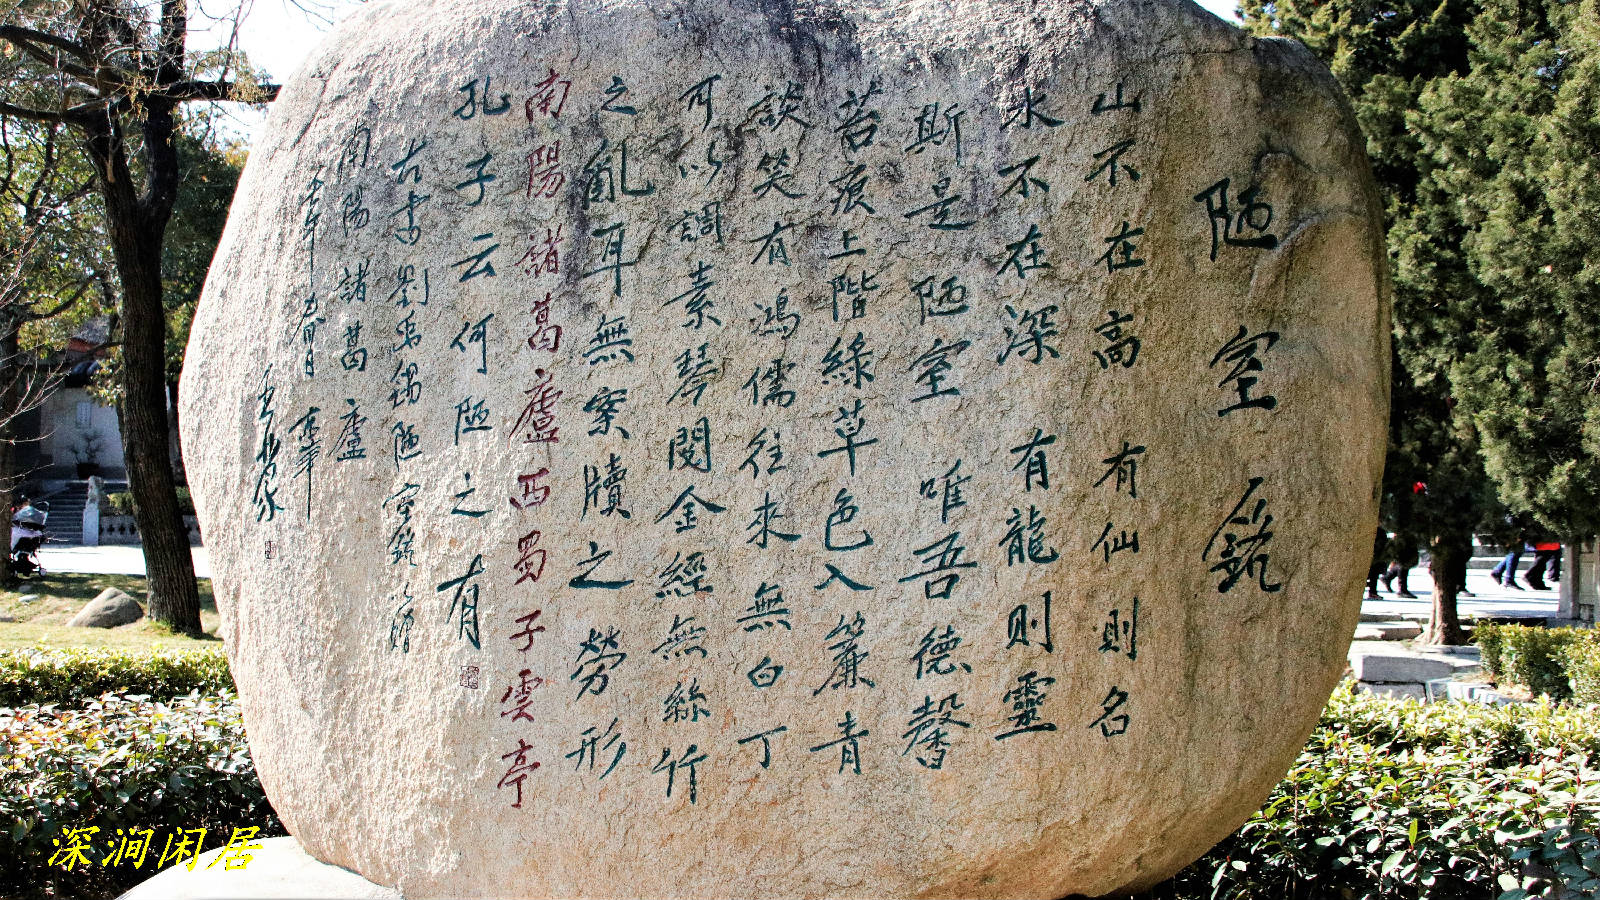 陋室銘
山不在高 有仙則名
水不在深 有龍則靈
斯是陋室 唯吾德馨
苔痕上階綠草色入簾青
談笑有鴻儒往來無白丁
可以調素琴閱金經無絲竹
之亂耳無案牘之勞形
南陽諸葛廬西蜀子雲亭
孔子云何陋之有
右書劉禹錫陋室銘
南陽諸葛廬
深涧闲居